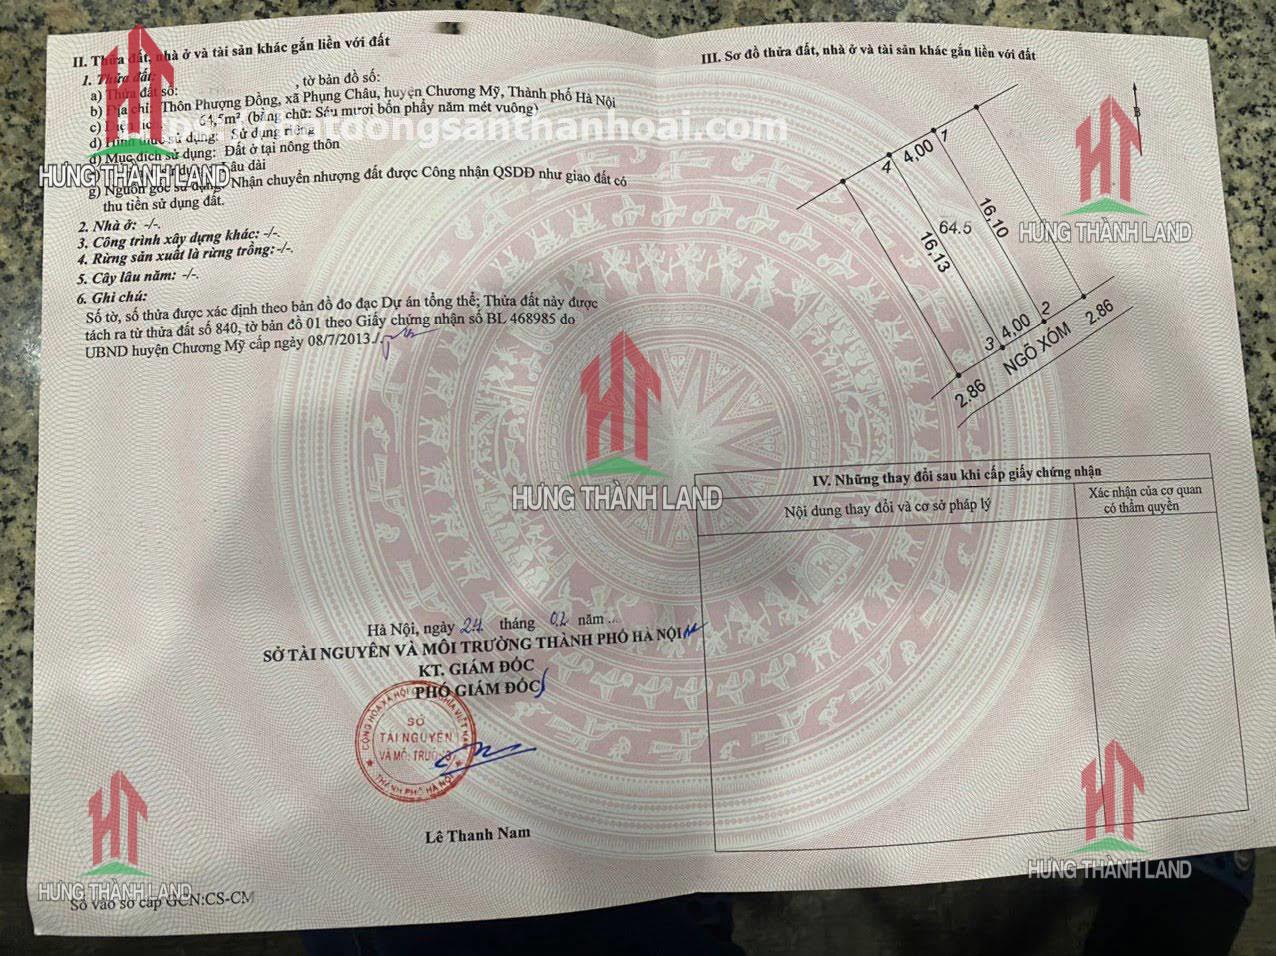 II. Thửa đất, nhà ở và tài sản khác gắn liền với đất
1. Thửa đất:
a) Thửa đất số: , tờ bản đồ số:
b) Địa chỉ: Thôn Phượng Đồng, xã Phụng Châu, huyện Chương Mỹ, Thành phố Hà Nội
c) 64,5m², (bằng chữ: Sáu mươi bốn phẩy năm mét vuông)
d) Hình thức sử dụng: Sử dụng riêng
đ) Mục đích sử dụng: Đất ở tại nông thôn
Lâu dài
g) Nguồn gốc sử dụng: Nhận chuyển nhượng đất được Công nhận QSDĐ như giao đất có
thu tiền sử dụng đất.
2. Nhà ở: -/-.
3. Công trình xây dựng khác: -/-.
4. Rừng sản xuất là rừng trồng: -/-.
5. Cây lâu năm: -/-.
6. Ghi chú:
Số tờ, số thửa được xác định theo bản đồ đo đạc Dự án tổng thể; Thửa đất này được
tách ra từ thửa đất số 840, tờ bản đồ 01 theo Giấy chứng nhận số BL 468985 do
UBND huyện Chương Mỹ cấp ngày 08/7/2013./.
Hà Nội, ngày 24 tháng 02 năm ...
SỞ TÀI NGUYÊN VÀ MÔI TRƯỜNG THÀNH PHỐ HÀ NỘI
KT. GIÁM ĐỐC
PHÓ GIÁM ĐỐC
SỞ
TÀI NGUYÊN
VÀ MÔI TRƯỜNG
THÀNH PHỐ HÀ NỘI
Lê Thanh Nam
Số vào sổ cấp GCN:CS-CM
III. Sơ đồ thửa đất, nhà ở và tài sản khác gắn liền với đất
B
1
4,00
4
16,10
64.5
16,13
2
4,00
3
2.86
NGÕ XÓM
2.86
IV. Những thay đổi sau khi cấp giấy chứng nhận
Nội dung thay đổi và cơ sở pháp lý
Xác nhận của cơ quan
có thẩm quyền
HƯNG THÀNH LAND
HƯNG THÀNH LAND
HƯNG THÀNH LAND
HƯNG THÀNH LAND
HƯNG THÀNH LAND